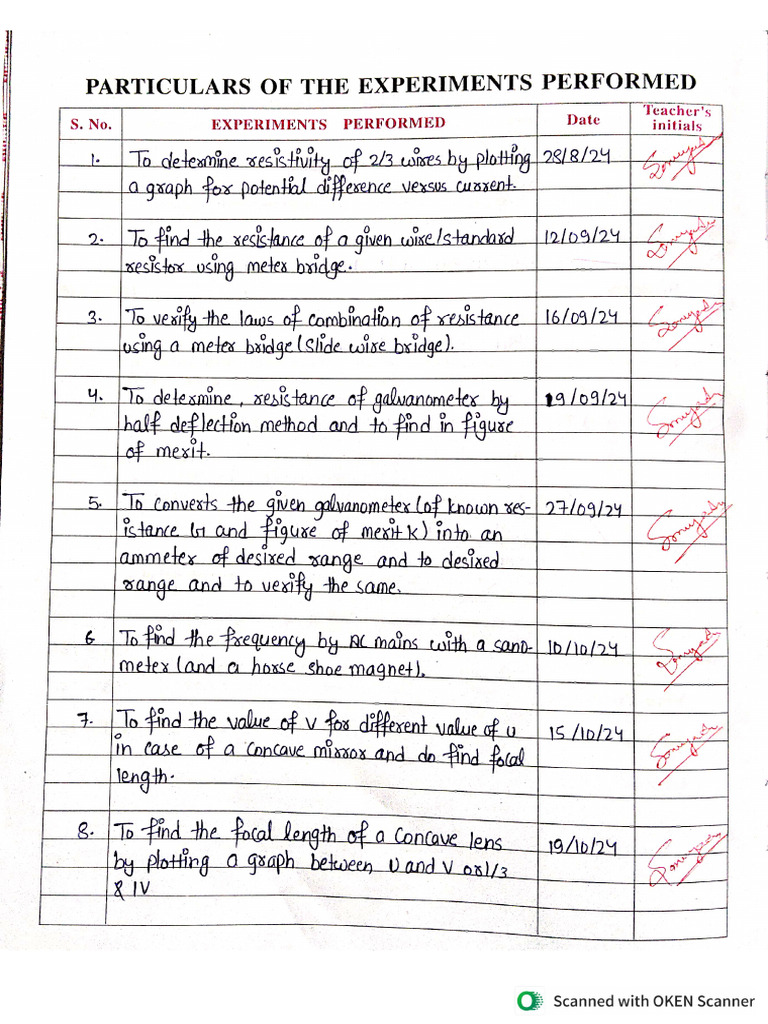 PARTICULARS OF THE EXPERIMENTS PERFORMED
S. No. EXPERIMENTS PERFORMED Date Teacher's initials
1. To determine resistivity of 2/3 wires by plotting 28/8/24
a graph for potential difference versus current.
2. To find the resistance of a given wire/standard 12/09/24
resistor using meter bridge.
3. To verify the laws of combination of resistance 16/09/24
using a meter bridge (Slide wire bridge).
4. To determine, resistance of galvanometer by 19/09/24
half deflection method and to find in figure
of merit.
5. To converts the given galvanometer (of known res- 27/09/24
istance G and figure of merit K) into an
ammeter of desired range and to desired
range and to verify the same.
6 To find the frequency by AC mains with a sano- 10/10/24
meter (and a horse shoe magnet).
7. To find the value of V for different value of U 15/10/24
in case of a concave mirror and do find focal
length.
8. To find the focal length of a concave lens 19/10/24
by plotting a graph between U and V or 1/3
& IV
Scanned with OKEN Scanner